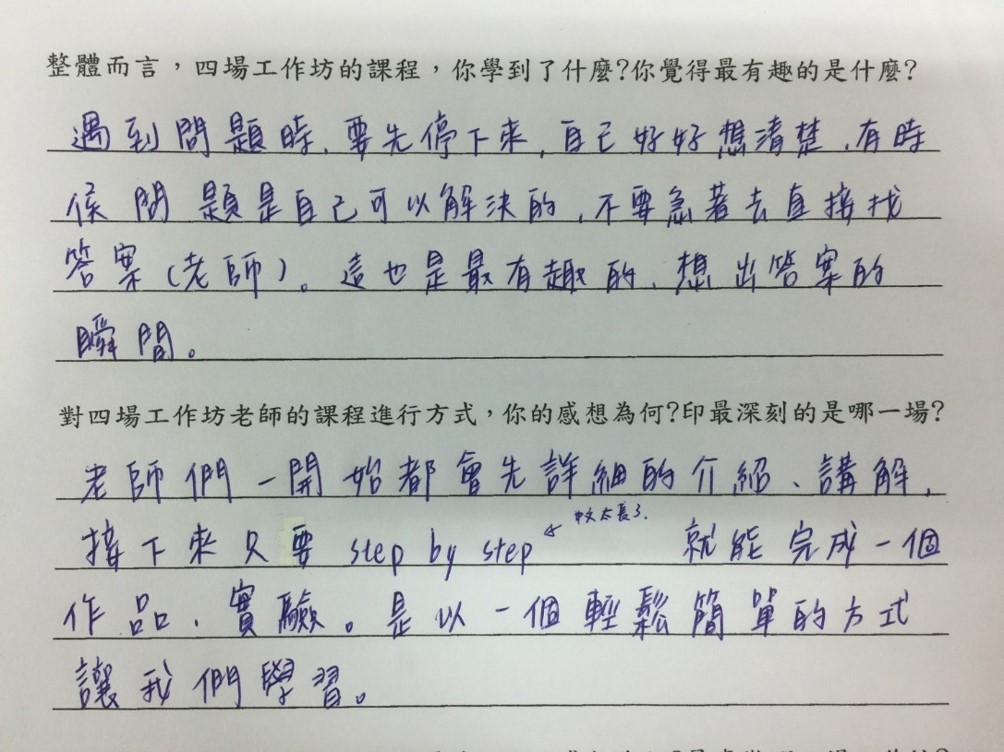 整體而言，四場工作坊的課程，你學到了什麼?你覺得最有趣的是什麼?
遇到問題時，要先停下來，自己好好想清楚，有時
侯問題是自己可以解決的，不要急著去直接找
答案(老師)。這也是最有趣的，想出答案的
瞬間。
對四場工作坊老師的課程進行方式，你的感想為何?印最深刻的是哪一場?
老師們一開始都會先詳細的介紹、講解，
中文太長了.
接下來只要 step by step 就能完成一個
作品、實驗。是以一個輕鬆簡單的方式
讓我們學習。